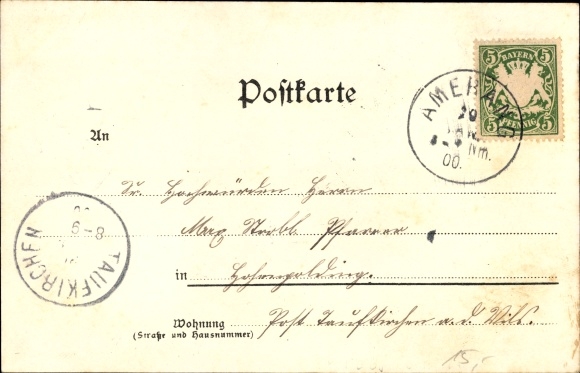 5 BAYERN 5
5 PFENNIG 5
Postkarte
AMERANG
29
JAN.
Nm.
00.
An
Sr. Hochwürden Herrn
Max Strobl Pfarrer
in Hohenpolding.
TAUFKIRCHEN
6-8
Wohnung Post Taufkirchen a. d. Vils.
(Straße und Hausnummer)
15,-